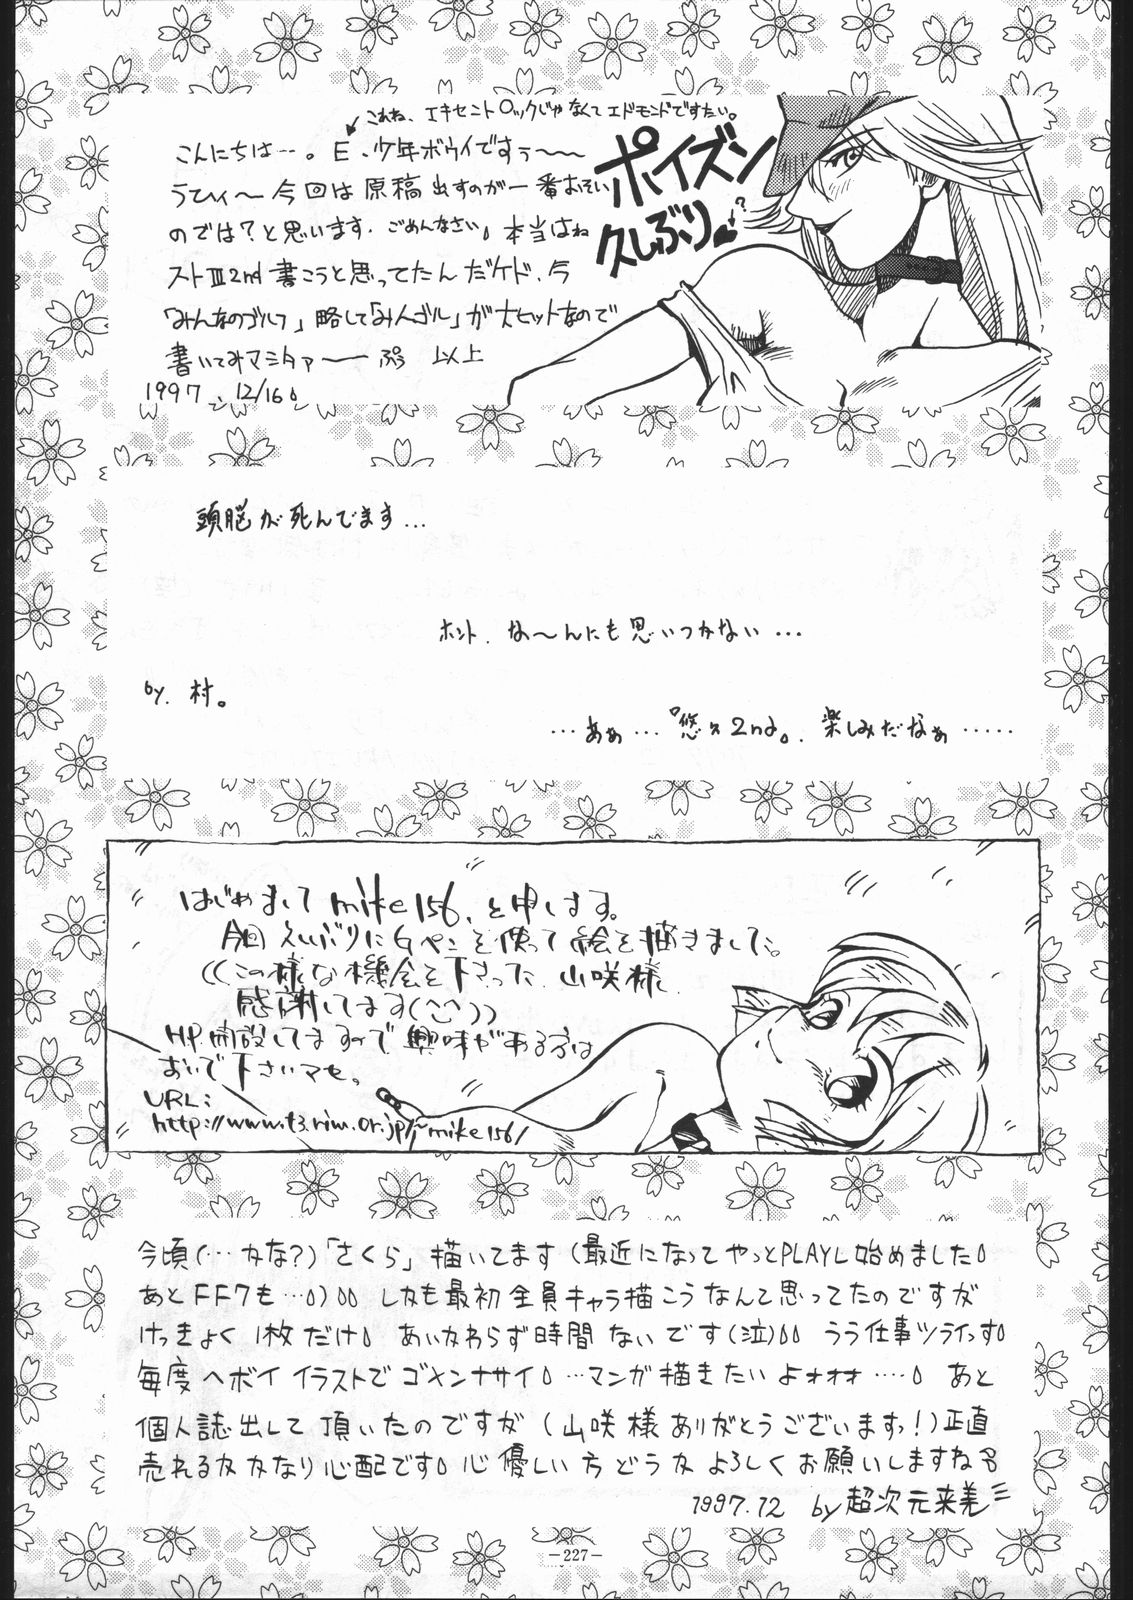 これね、エキセントロックじゃなくてエドモンドですたい。
こんにちは…。E、少年ボウイですぅ〜〜
うひィ〜今回は原稿出すのが一番おそい
のでは?と思います。ごめんなさい。本当はね
ストⅢ2nd書こうと思ってたんだケド、今
「みんなのゴルフ」略して「みんゴル」が大ヒットなので
書いてみマシタァ〜〜 ぷぅ 以上
1997、12/16。
ポイズン
久しぶり
?
頭脳が死んでます…
ホント、な〜んにも思いつかない…
by、村。
…あぁ… 2nd。、楽しみだなぁ……
はじめまして mike156、と申します。
今回久しぶりにGペンを使って絵を描きました。
((この様な機会を下さった、山咲様、
感謝してます(^^)))
HP、開設してますので、興味がある方は
おいで下さいマセ。
URL:
http://www.t3.rim.or.jp/~mike156/
今頃(…カな?)「さくら」描いてます(最近になってやっとPLAYし始めました。
あとFF7も…。)。。しかも最初全員キャラ描こうなんて思ってたのですが
けっきょく1枚だけ。あいかわらず時間ないです(泣)。。うう仕事ツライっす。
毎度ヘボイイラストでゴメンナサイ。…マンガ描きたいよォォォ…。あと
個人誌出して頂いたのですが(山咲様ありがとうございますっ!)正直
売れるかかなり心配です。心優しい方どうかよろしくお願いしますね
1997.12 by超次元来美
-227-